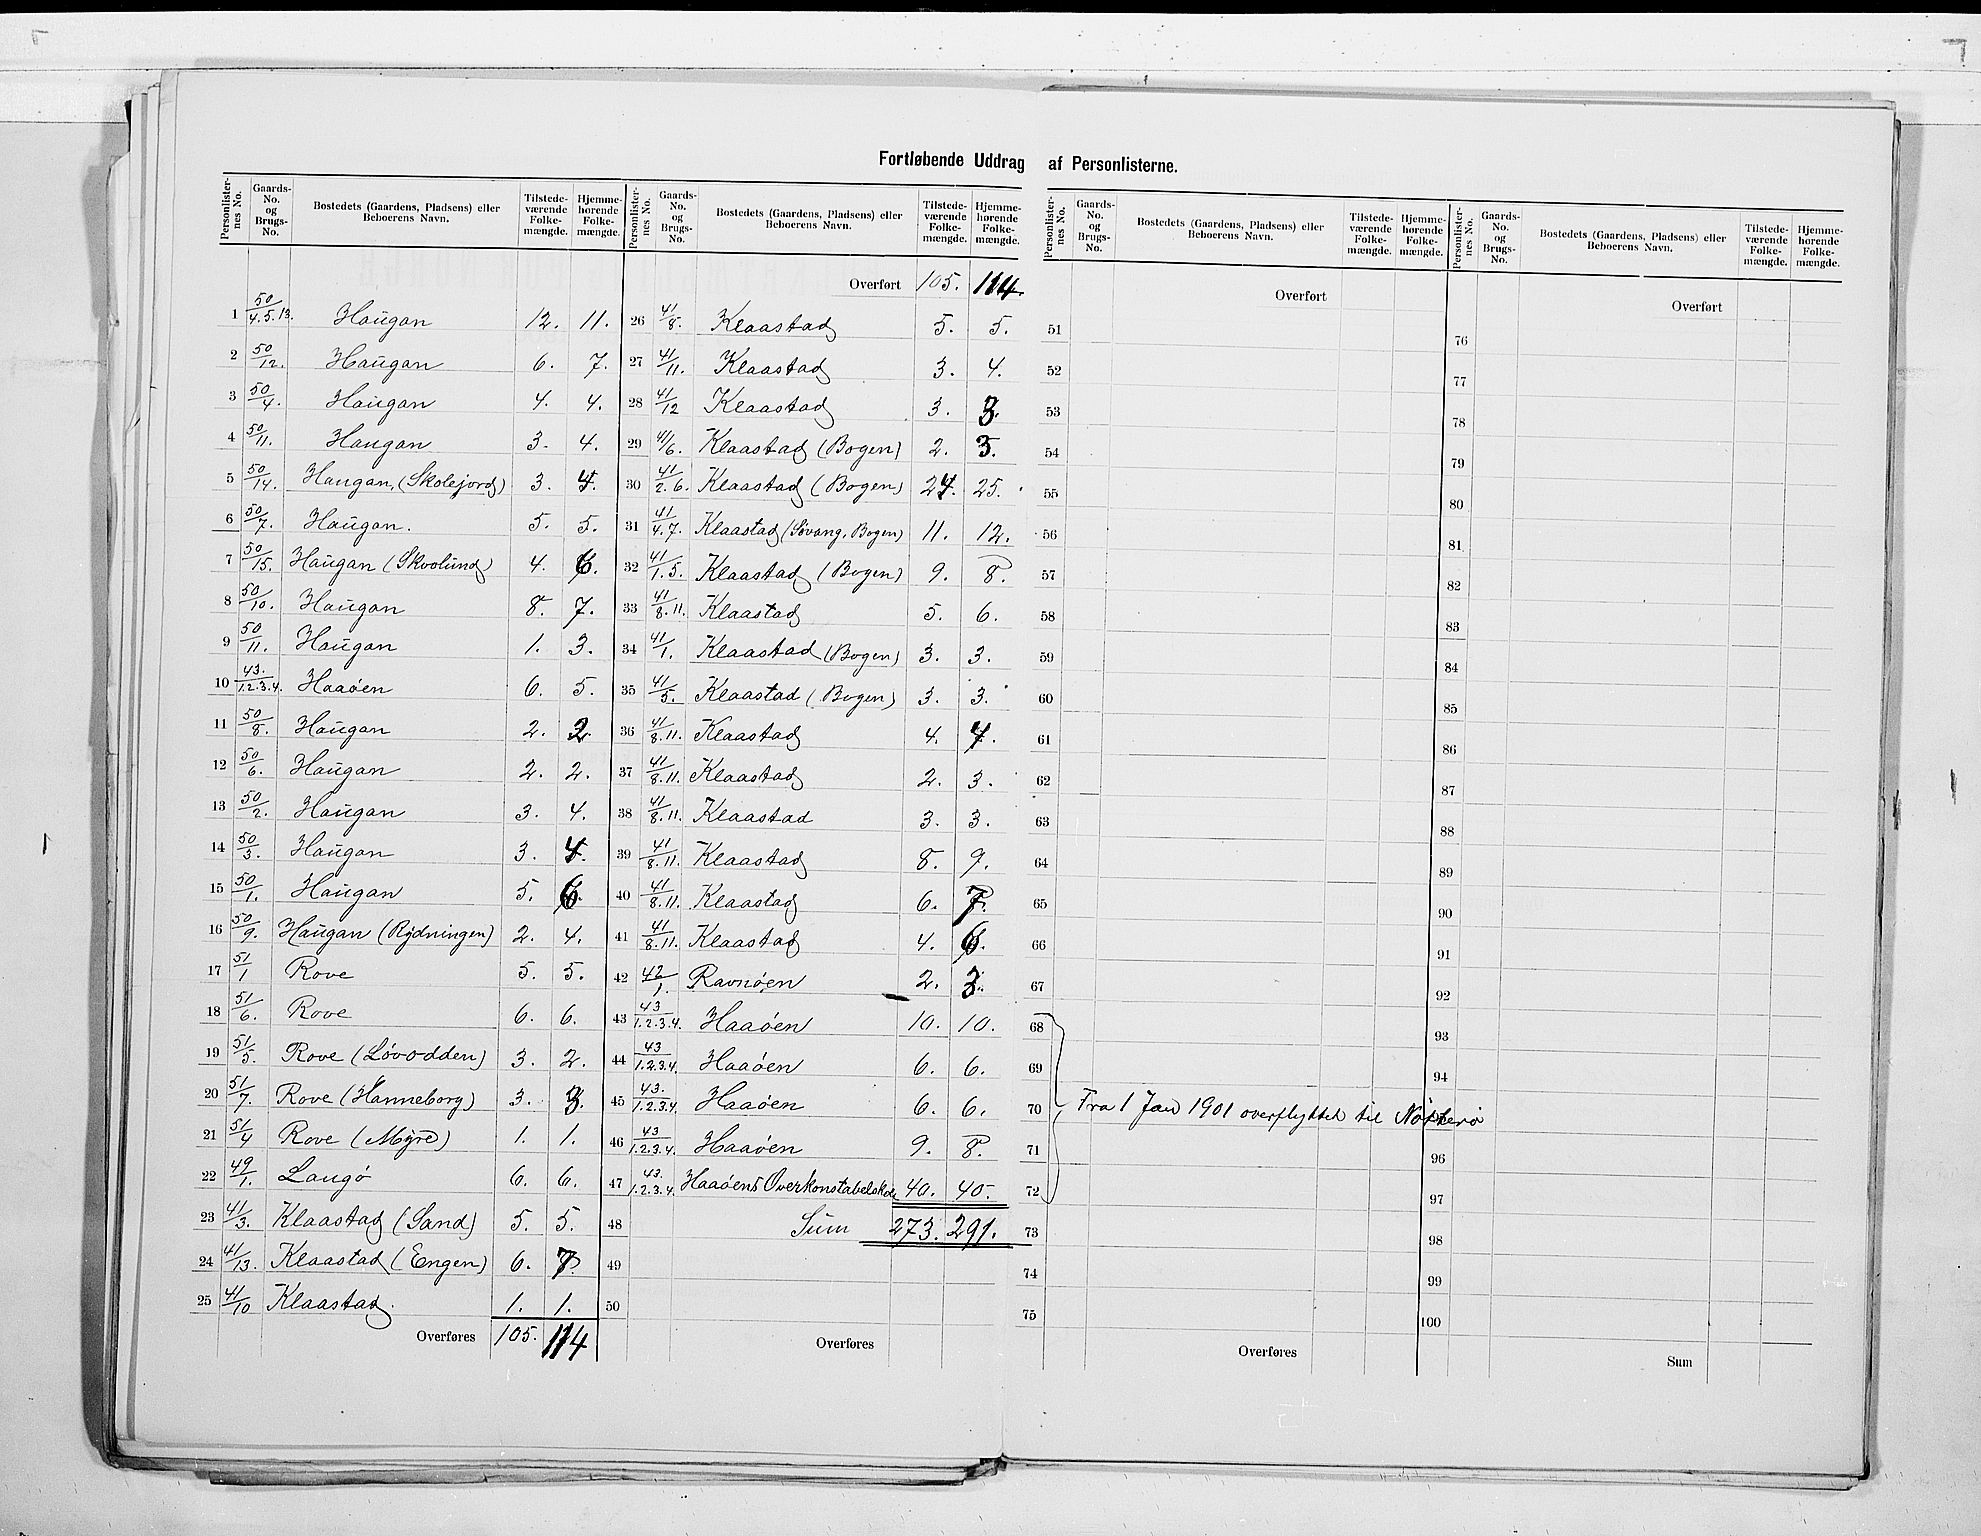 Fortløbende Uddrag af Personlisterne.
Personlister-nes No. Gaards-No. og Brugs-No. Bostedets (Gaardens, Pladsens) eller Beboerens Navn. Tilstede-værende Folke-mængde. Hjemme-hørende Folke-mængde.
1 50/4.5.13. Haugan 12. 11.
2 50/12. Haugan 6. 7.
3 50/4. Haugan 4. 4.
4 50/11. Haugan 3. 4.
5 50/14. Haugan, (Skolejord) 3. 4.
6 50/7. Haugan. 5. 5.
7 50/15. Haugan (Skvolund) 4. 6.
8 50/10. Haugan 8. 7.
9 50/11. Haugan 1. 3.
10 43./1.2.3.4. Haaøen 6. 5.
11 50/8. Haugan 2. 2.
12 50/6. Haugan 2. 2.
13 50/2. Haugan 3. 4.
14 50/3. Haugan 3. 4.
15 50/1. Haugan 5. 6.
16 50/9. Haugan (Rydningen) 2. 4.
17 51/1 Rove 5. 5.
18 51/6. Rove 6. 6.
19 51/5. Rove (Løvodden) 3. 2.
20 51/7. Rove (Hanneborg) 3. 3.
21 51/4 Rove (Myre) 1. 1.
22 49/1. Laugø 6. 6.
23 41/3. Klaastad (Sand) 5. 5.
24 41/13. Klaastad (Engen) 6. 7.
25 41/10 Klaastad. 1. 1.
Overføres 105. 114
Personlister-nes No. Gaards-No. og Brugs-No. Bostedets (Gaardens, Pladsens) eller Beboerens Navn. Tilstede-værende Folke-mængde. Hjemme-hørende Folke-mængde.
Overført 105. 114.
26 41/8. Klaastad 5. 5.
27 41/11. Klaastad 3. 4.
28 41/12 Klaastad 3. 3.
29 41/6. Klaastad (Bogen) 2. 3.
30 41/2.6. Klaastad (Bogen) 24. 25.
31 41/4.7. Klaastad (Søvang, Bogen) 11. 12.
32 41/1.5. Klaastad (Bogen) 9. 8.
33 41/8.11. Klaastad 5. 6.
34 41/1. Klaastad (Bogen) 3. 3.
35 41/5. Klaastad (Bogen) 3. 3.
36 41/8.11. Klaastad 4. 4.
37 41/8.11. Klaastad 2. 3.
38 41/8.11. Klaastad 3. 3.
39 41/8.11. Klaastad 8. 9.
40 41/8.11. Klaastad 6. 7.
41 41/8.11. Klaastad 4. 6.
42 42/1. Ravnøen 2. 3.
43 43/1.2.3.4. Haaøen 10. 10.
44 43/1.2.3.4. Haaøen 6. 6.
45 43./1.2.3.4 Haaøen 6. 6.
46 43/1.2.3.4. Haaøen 9. 8.
47 43./1.2.3.4. Haaøens Overkonstabelskole 40. 40.
48 Sum 273. 291.
49
50
Overføres
Personlister-nes No. Gaards-No. og Brugs-No. Bostedets (Gaardens, Pladsens) eller Beboerens Navn. Tilstede-værende Folke-mængde. Hjemme-hørende Folke-mængde.
Overført
51
52
53
54
55
56
57
58
59
60
61
62
63
64
65
66
67
68
69
70 Fra 1 Jan 1901 overflyttet til Nøtterø
71
72
73
74
75
Overføres
Personlister-nes No. Gaards-No. og Brugs-No. Bostedets (Gaardens, Pladsens) eller Beboerens Navn. Tilstede-værende Folke-mængde. Hjemme-hørende Folke-mængde.
Overført
76
77
78
79
80
81
82
83
84
85
86
87
88
89
90
91
92
93
94
96
97
98
99
100
Sum